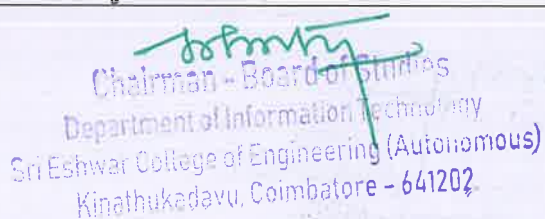 Chairman - Board of Studies
Department of Information Technology
Sri Eshwar College of Engineering (Autonomous)
Kinathukadavu, Coimbatore - 641202